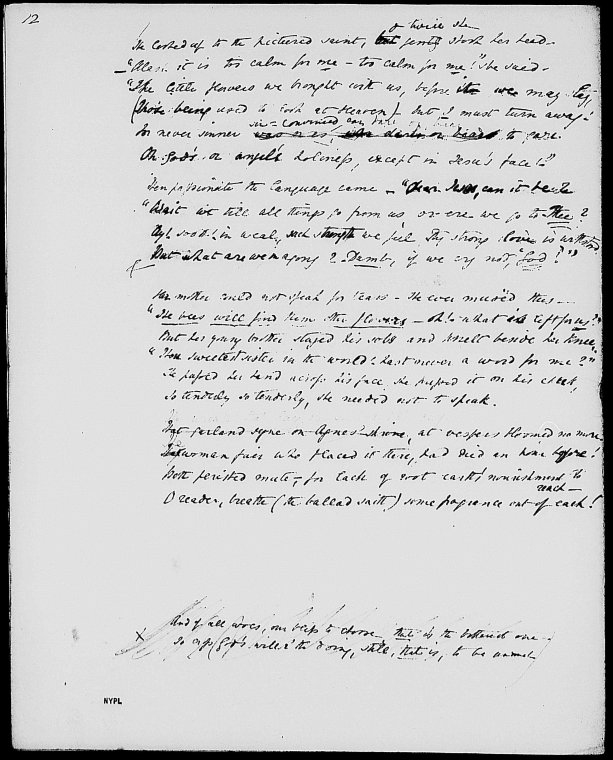 12
& twice she
She looked up to the pictured saint, but gently shook her head—
"Alas! it is too calm for me — too calm for me!" she said.
"The little flowers we brought with us, before we may
(Those being used to look at Heaven) but I must turn away—
for never sinner to gaze
On God's or angel's holiness, except in Jesu's face!"
Then passionate the language came — "Dear Jesu, can it be
"Wait we till all things go from us or ere we go to Thee?
we feel Thy strong love
But what are we among? Dumb, if we cry not "God"!"
Her mother could not speak for tears — She ever mused thus—
"The bees will find them other flowers — Oh! what is left for us?"
But her young brother stayed his sobs and knelt beside her knee,
"Thou sweetest sister in the world! hast never a word for me?"
She passed her hand across his face, she pressed it on his cheek,
So tenderly so tenderly, she needed not to speak.
That garland syne on Agnes' shrine, at vespers bloomed no more
The woman fair who placed it there, had died an hour before!
Both perished mute — for lack of root earth's nourishment to
reach—
O reader, breathe (the ballad saith) some fragrance out of each!
x And of all that is the bitterest one
God's will still, that is, to be
NYPL